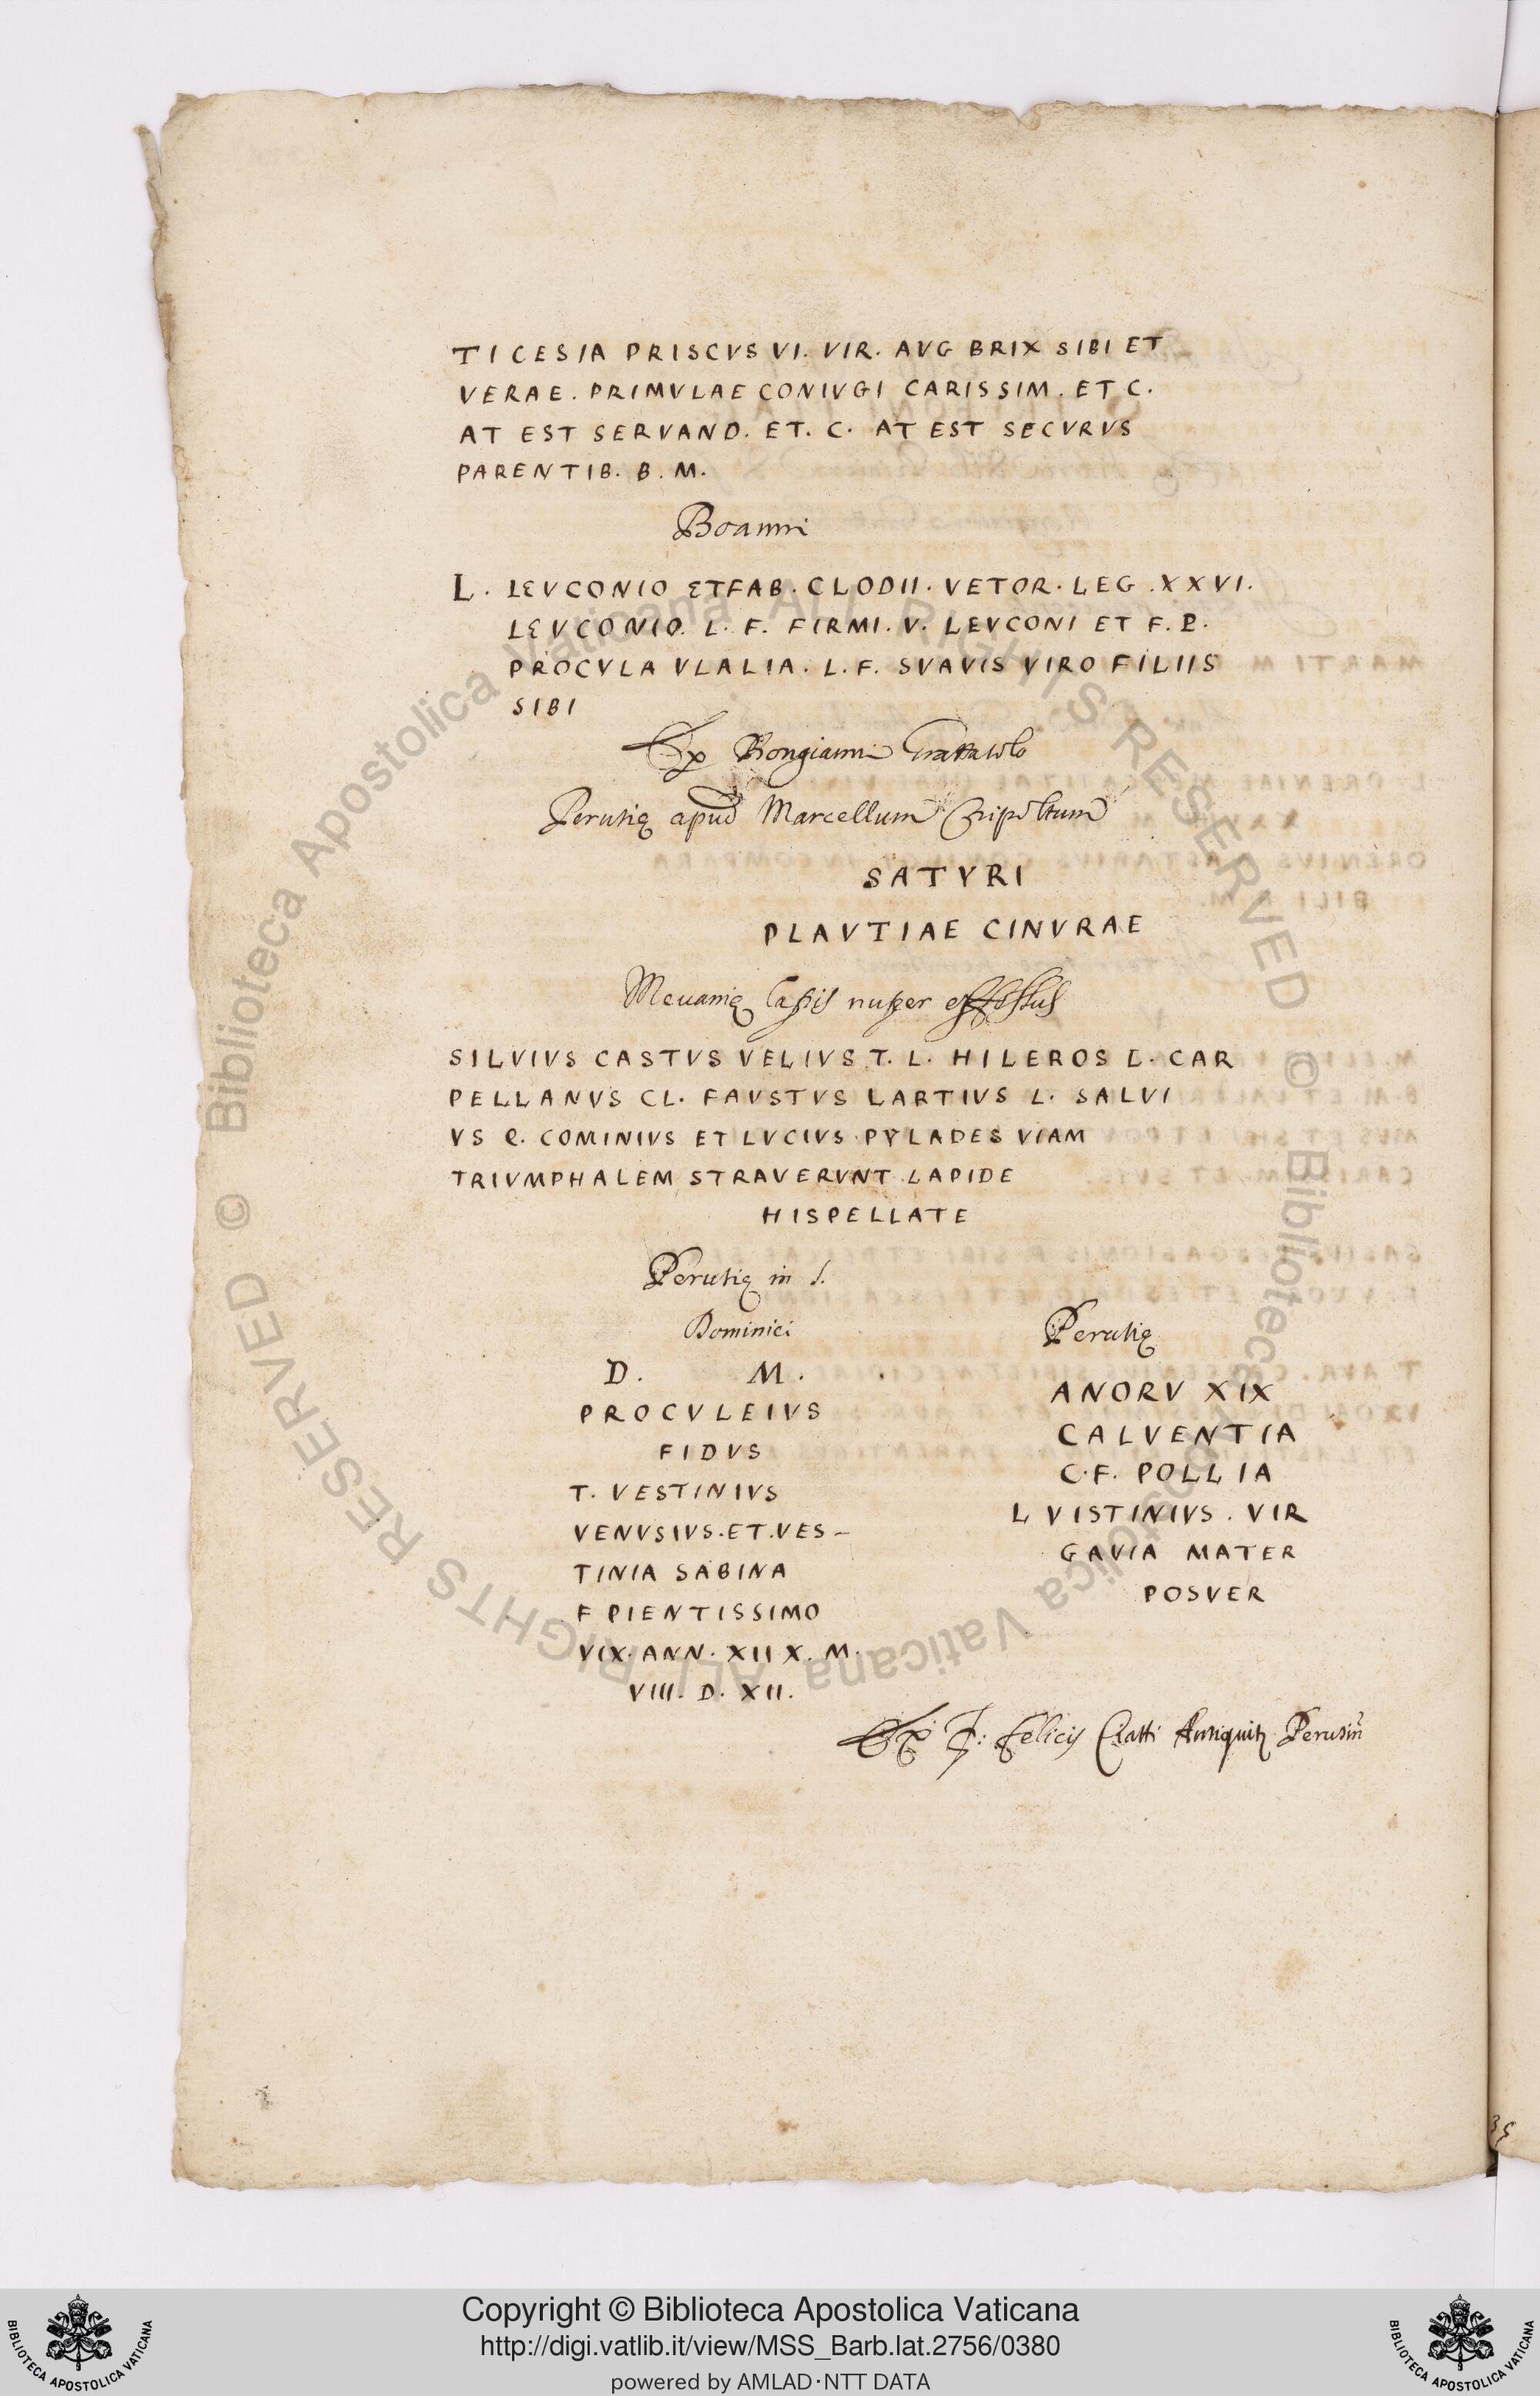 TI CESIA PRISCVS VI. VIR. AVG BRIX SIBI ET
VERAE. PRIMVLAE CONIVGI CARISSIM. ET C.
AT EST SERVAND. ET. C. AT EST SECVRVS
PARENTIB. B. M.
Boanni
L. LEVCONIO ET FAB. CLODII. VETOR. LEG. XXVI.
LEVCONIO. L. F. FIRMI. V. LEVCONI ET F. P.
PROCVLA VLALIA. L. F. SVAVIS VIRO FILIIS
SIBI
Ex Bongianni Grattarolo
Perusię apud Marcellum
SATYRI
PLAVTIAE CINVRAE
Mevanię lapis nuper effossus
SILVIVS CASTVS VELIVS T. L. HILEROS L. CAR
PELLANVS CL. FAVSTVS LARTIVS L. SALVI
VS Q. COMINIVS ET LVCIVS PYLADES VIAM
TRIVMPHALEM STRAVERVNT LAPIDE
HISPELLATE
Perusię in S.
Dominici
D. M.
PROCVLEIVS
FIDVS
T. VESTINIVS
VENVSIVS. ET. VES-
TINIA SABINA
F PIENTISSIMO
VIX. ANN. XIIX. M.
VIII. D. XII.
Perusię
ANORV XIX
CALVENTIA
C. F. POLLIA
L VISTINIVS. VIR
GAVIA MATER
POSVER
Ex F: Felicis Ciatti Antiquit. Perusin
Copyright © Biblioteca Apostolica Vaticana
http://digi.vatlib.it/view/MSS_Barb.lat.2756/0380
powered by AMLAD·NTT DATA
BIBLIOTECA APOSTOLICA VATICANA
BIBLIOTECA APOSTOLICA VATICANA
© Biblioteca Apostolica Vaticana ALL RIGHTS RESERVED © Biblioteca Apostolica Vaticana ALL RIGHTS RESERVED